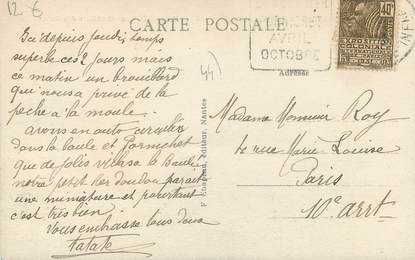 12-6
CARTE POSTALE
AVRIL
OCTOBRE
40c
EXPOSITION
COLONIALE
44
Adresse
F. Chapeau, éditeur, Nantes
Ici depuis jeudi, temps
superbe ces 2 jours mais
ce matin un brouillard
qui nous a privé de la
pêche à la moule.
avons en auto circulé
dans la baule et Pornichet
que de jolis villas à la Baule
notre petit paraît
une miniature et pourtant
c'est très bien
Vous embrasse tous deux
Tatate
Madame Monsieur Roy
6 rue Marie Louise
Paris
10e arrt